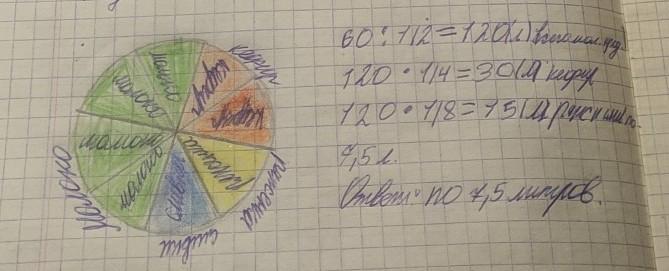 кефир
молоко
молоко
кефир
кефир
молоко
молоко
сливки
ряженка
молоко
ряженка
сливки
60 : 1/2 = 120(л) всего мол. прод.
120 · 1/4 = 30(л) кефир
120 · 1/8 = 15(л) ряженки и сливки по
7,5 л.
Ответ: по 7,5 литров.